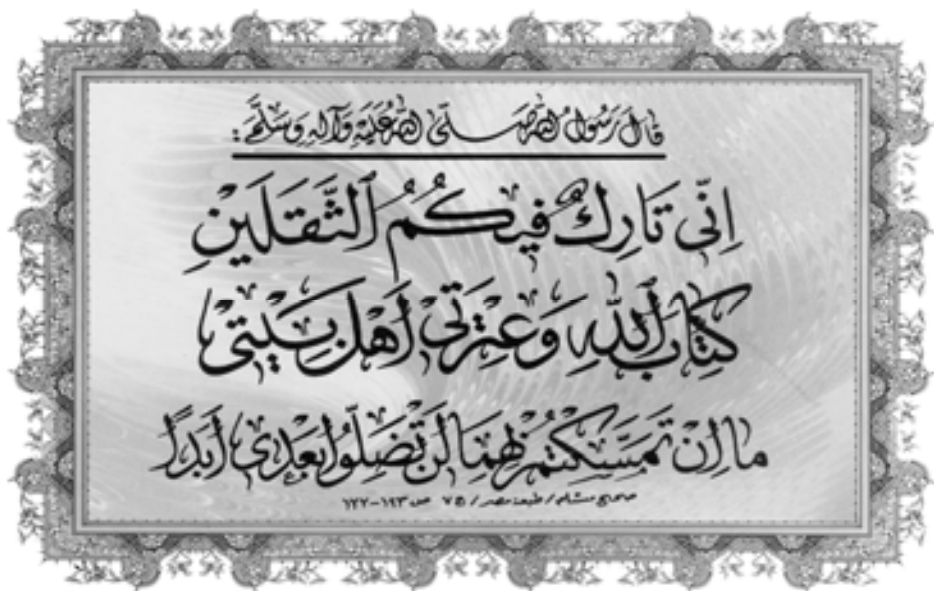 قَالَ رَسُولُ اللهِ صَلَّى اللهُ عَلَيْهِ وَآلِهِ وَسَلَّمَ :
اِنّى تَارِكٌ فيكُمُ ٱلثَّقَلَيْنِ
كِتَابَ ٱللهِ وَعِتْرَتى أَهْلَ بَيْتى
ما اِنْ تَمَسَّكْتُمْ بِهِمَا لَنْ تَضِلُّوا بَعْدى أَبَدًا
صحيح مسلم / طبعة مصر / ج٧ ص ١٢٢-١٢٣